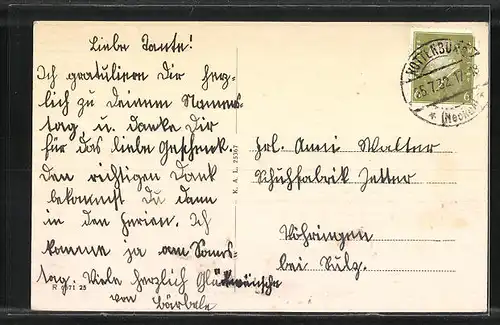 Liebe Tante!
Ich gratuliere Dir herz-
lich zu Deinem Namens-
tag, u. danke Dir
für das liebe Geschenk.
Den richtigen Dank
bekommst Du dann
in den Ferien. Ich
komme ja am Sams-
tag. Viele herzlich Glückwünsche
von Bärbele
R 6971 25
K.A.L. 25367
ROTTENBURG
26.7.32.17
* (Neckar)
Frl. Ami Walter
Schuhfabrik Zetter
Vöhringen
bei Sulz.